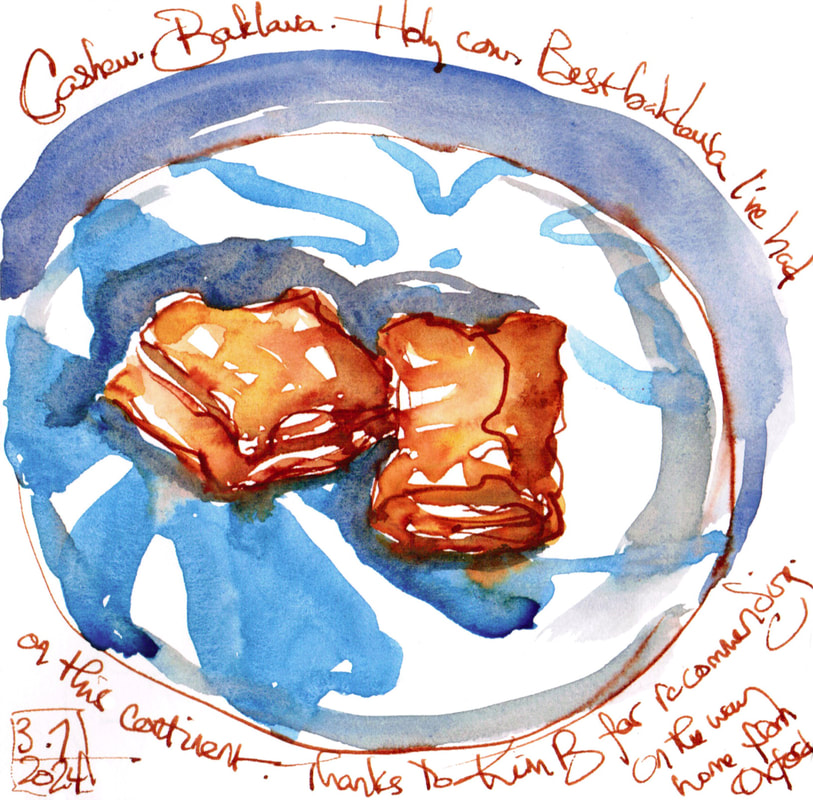 Cashew. Baklava. Holy cow. Best baklava I've had
on this continent. Thanks to Kim B for recommending.
on the way
home from
Oxford
3.1
2024